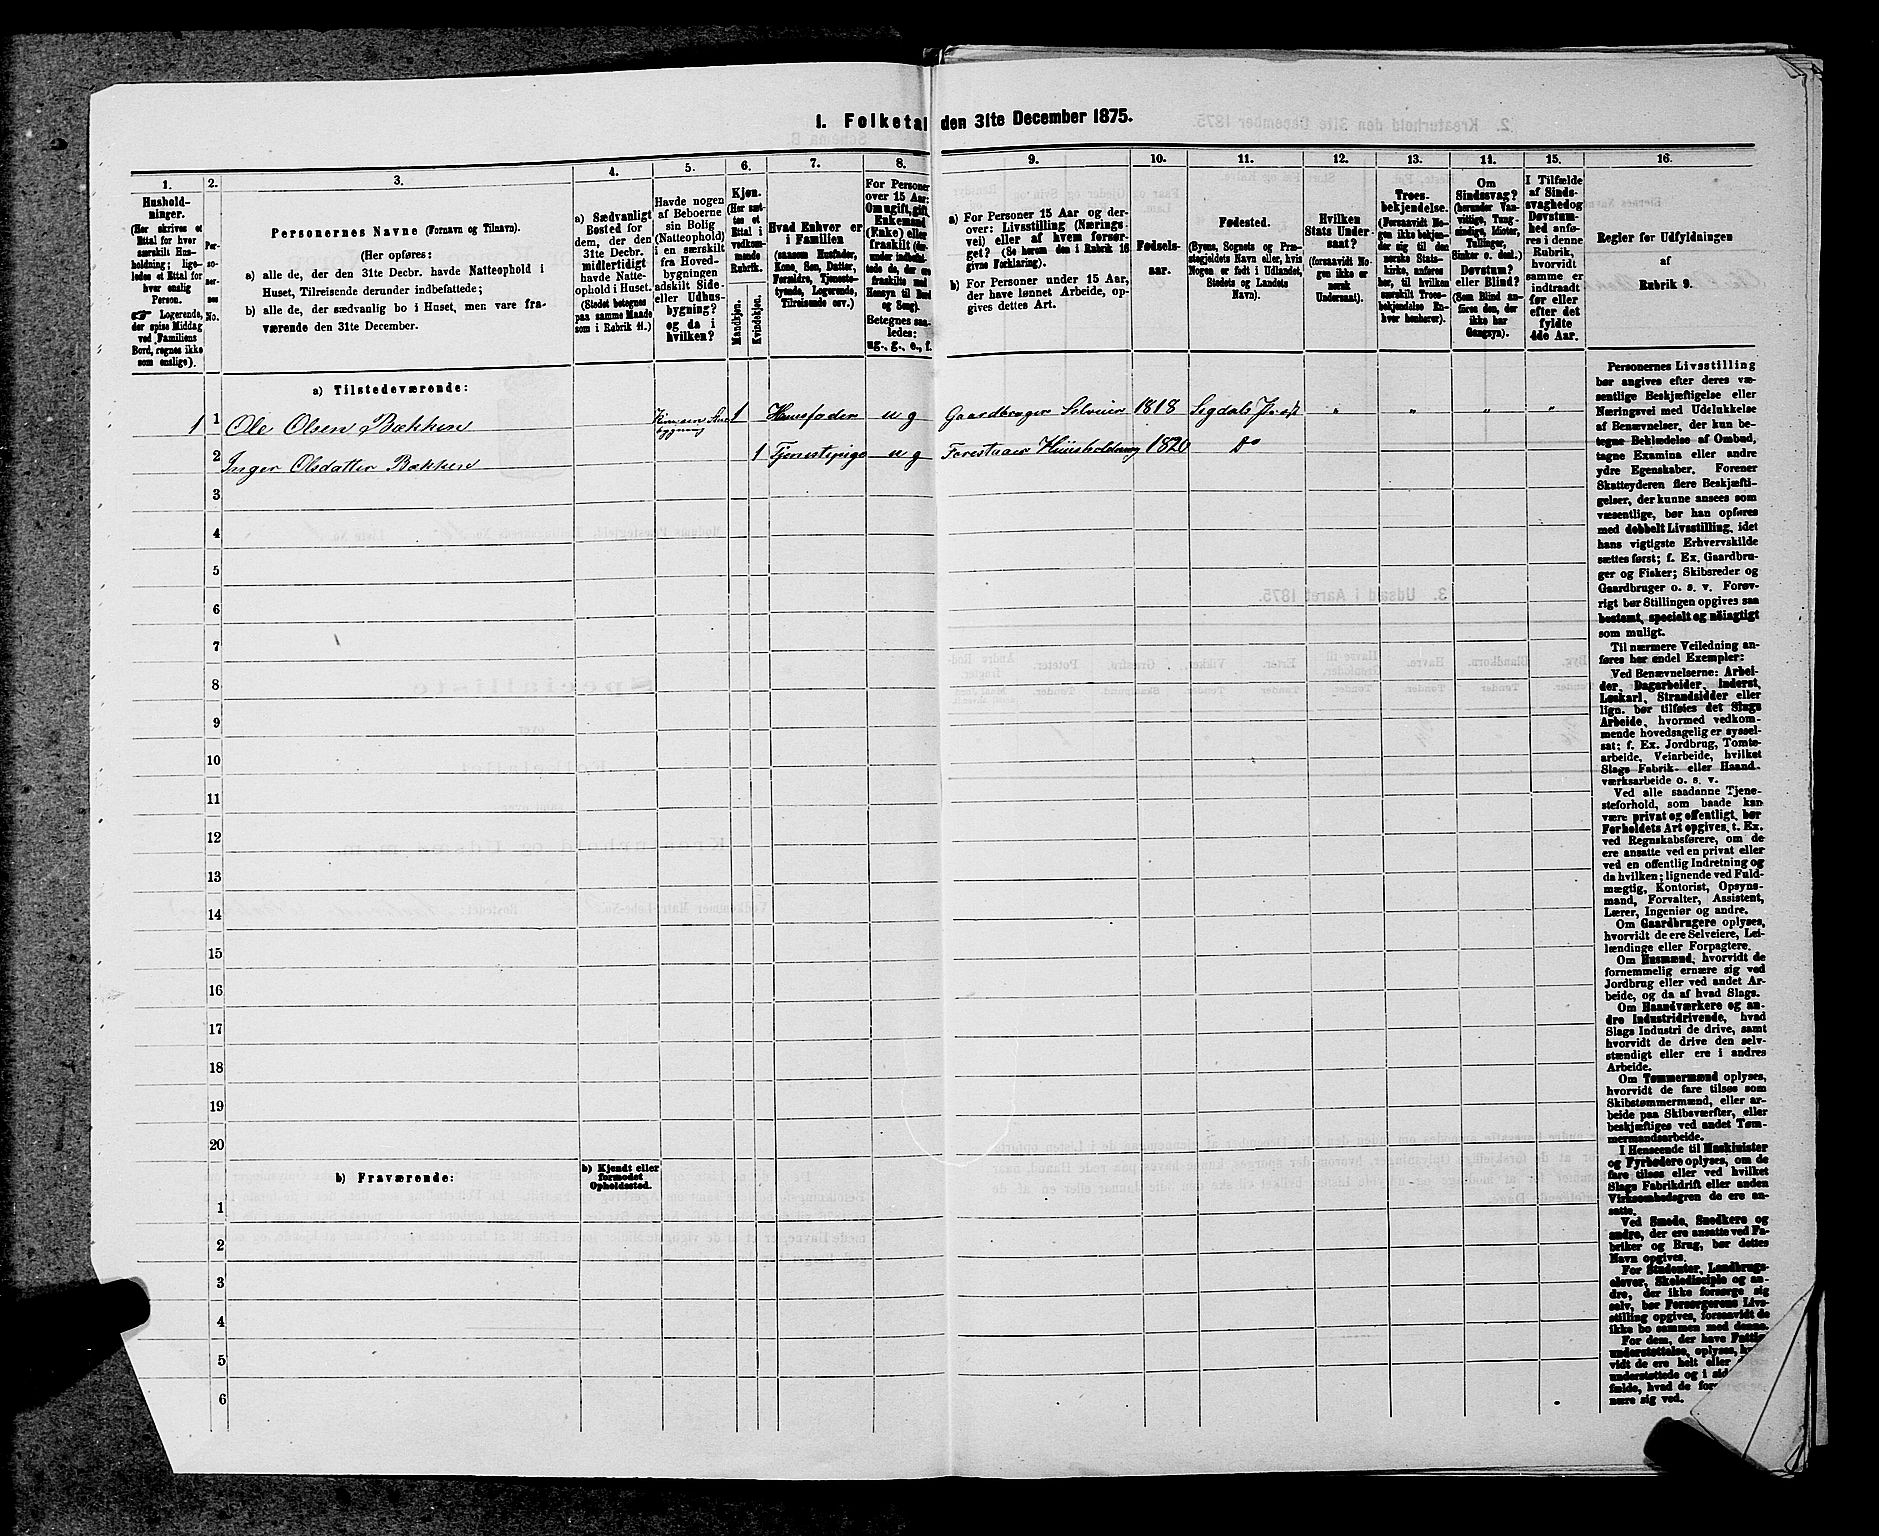 1. Folketal den 31te December 1875.
1. 2. 3. 4. 5. 6. 7. 8. 9. 10. 11. 12. 13. 14. 15. 16.
Hushold-
ninger.
(Her skrives et
Ettal for hver
særskilt Hus-
holdning; lige-
ledes et Ettal
for enslig
Person.
☞ Logerende,
der spise Middag
ved Familiens
Bord, regnes ikke
som enslige).
Per-
so-
ner-
nes
No.
Personernes Navne (Fornavn og Tilnavn).
(Her opføres:
a) alle de, der den 31te Decbr. havde Natteophold i
Huset, Tilreisende derunder indbefattede;
b) alle de, der sædvanlig bo i Huset, men vare fra-
værende den 31te December.
a) Sædvanligt
Bosted for
dem, der den
31te Decbr.
midlertidigt
havde Natte-
ophold i Huset.
(Stedet betegnes
paa samme Maade
som i Rubrik 11.)
Havde nogen
af Beboerne
sin Bolig
(Natteophold)
i en særskilt
fra Hoved-
bygningen
adskilt Side-
eller Udhus-
bygning?
og da i
hvilken?
Kjøn.
(Her sæt-
tes et
Ettal i
vedkom-
mende
Rubrik.
Mandkjøn.
Kvindekjøn.
Hvad Enhver er
i Familien
(saasom Husfader,
Kone, Søn, Datter,
Forældre, Tjeneste-
tyende, Logerende,
Tilreisende osv.)
For Personer
over 15 Aar:
Om ugift, gift,
Enkemand
(Enke) eller
fraskilt (der-
under indbefat-
tede de, der ere
fraskilte med
Hensyn til Bord
og Seng).
Betegnes saa-
ledes:
ug., g., e., f.
a) For Personer 15 Aar og der-
over: Livsstilling (Nærings-
vei) eller af hvem forsør-
get? (Se herom den i Rubrik 16
givne Forklaring).
b) For Personer under 15 Aar,
der have lønnet Arbeide, op-
gives dettes Art.
Fødsels-
aar.
Fødested.
(Byens, Sognets og Præ-
stegjeldets Navn eller, hvis
Nogen er født i Udlandet,
Stedets og Landets
Navn).
Hvilken
Stats Under-
saat?
(forsaavidt No-
gen ikke er
norsk
Undersaat).
Troes-
bekjendelse.
(Forsaavidt No-
gen ikke bekjen-
der sig til den
norske Stats-
kirke, anføres
her, til hvilken
særskilt Troes-
bekjendelse En-
hver henhører).
Om
Sindssvag?
(herunder Van-
vittige, Tung-
sindige, Idioter,
Tullinger,
Sinker o. desl.)
Døvstum?
eller Blind?
(Som Blind an-
føres den, der
ikke har
Gangsyn).
I Tilfælde
af Sinds-
svaghed og
Døvstum-
hed anfø-
res i denne
Rubrik,
hvorvidt
samme er
indtraadt
før eller
efter det
fyldte
4de Aar.
Regler for Udfyldningen
af
Rubrik 9.
a) Tilstedeværende:
1 1 Ole Olsen Bakken 1 Huusfader ug Gaardbruger Selveier 1818 Sigdals Præst " " " "
bygning
2 Inger Olsdatter Bakken 1 Tjenestepige ug Forestaaer Huusholdning 1820 Do
3
4
5
6
7
8
9
10
11
12
13
14
15
16
17
18
19
20
b) Fraværende:
b) Kjendt eller
formodet
Opholdssted.
1
2
3
4
5
6
Personernes Livsstilling
bør angives efter deres væ-
sentlige Beskjæftigelse eller
Næringsvei med Udelukkelse
af Benævnelser, der kun be-
tegne Beklædelse af Ombud,
tagne Examina eller andre
ydre Egenskaber. Forener
Skatteyderen flere Beskjæfti-
gelser, der kunne ansees som
væsentlige, bør han opføres
med dobbelt Livsstilling, idet
hans vigtigste Erhvervskilde
sættes først; f. Ex. Gaardbru-
ger og Fisker; Skibsreder og
Gaardbruger o. s. v. Forøv-
rigt bør Stillingen opgives saa
bestemt, specielt og nøiagtigt
som muligt.
Til nærmere Veiledning an-
føres her endel Exempler:
Ved Benævnelserne: Arbei-
der, Dagarbeider, Inderst,
Løskarl, Strandsidder eller
lign. bør tilføies det Slags
Arbeide, hvormed vedkom-
mende hovedsagelig er syssel-
sat; f. Ex. Jordbrug, Tomte-
arbeide, Veiarbeide, hvilket
Slags Fabrik- eller Haand-
værksarbeide o. s. v.
Ved alle saadanne Tjene-
steforhold, som baade kan
være privat og offentligt, bør
Forholdets Art opgives, t. Ex.
ved Regnskabsførere, om de
ere ansatte ved en privat eller
ved en offentlig Indretning og
da hvilken; lignende ved Fuld-
mægtig, Kontorist, Opsyns-
mand, Forvalter, Assistent,
Lærer, Ingeniør og andre.
Om Gaardbrugere oplyses,
hvorvidt de ere Selveiere, Lei-
lændinge eller Forpagtere.
Om Husmænd, hvorvidt de
fornemmelig ernære sig ved
Jordbrug eller ved andet Ar-
beide, og da af hvad Slags.
Om Haandværkere og an-
dre Industridrivende, hvad
Slags Industri de drive, samt
hvorvidt de drive den selv-
stændigt eller ere i andres
Arbeide.
Om Tømmermænd oplyses,
hvorvidt de fare tilsøs som
Skibstømmermænd, eller ar-
beide paa Skibsværfter, eller
beskjæftiges ved andet Tøm-
mermandsarbeide.
I Henseende til Maskinister
og Fyrbødere oplyses, om de
fare tilsøs eller ved hvilket
Slags Fabrikdrift eller anden
Virksomhedsgren de ere an-
satte.
Ved Smede, Snedkere og
andre, der ere ansatte ved Fa-
briker og Brug, bør dettes
Navn opgives.
For Studenter, Landbrugs-
elever, Skoledisciple og an-
dre, der ikke forsørge sig
selv, bør Forsørgerens Livs-
stilling opgives, forsaavidt de
ikke bo sammen med denne.
For dem, der have Fattig-
understøttelse, oplyses,
vidt de ere helt eller
understøttede og i
fælde, hvad de
nære sig ved.